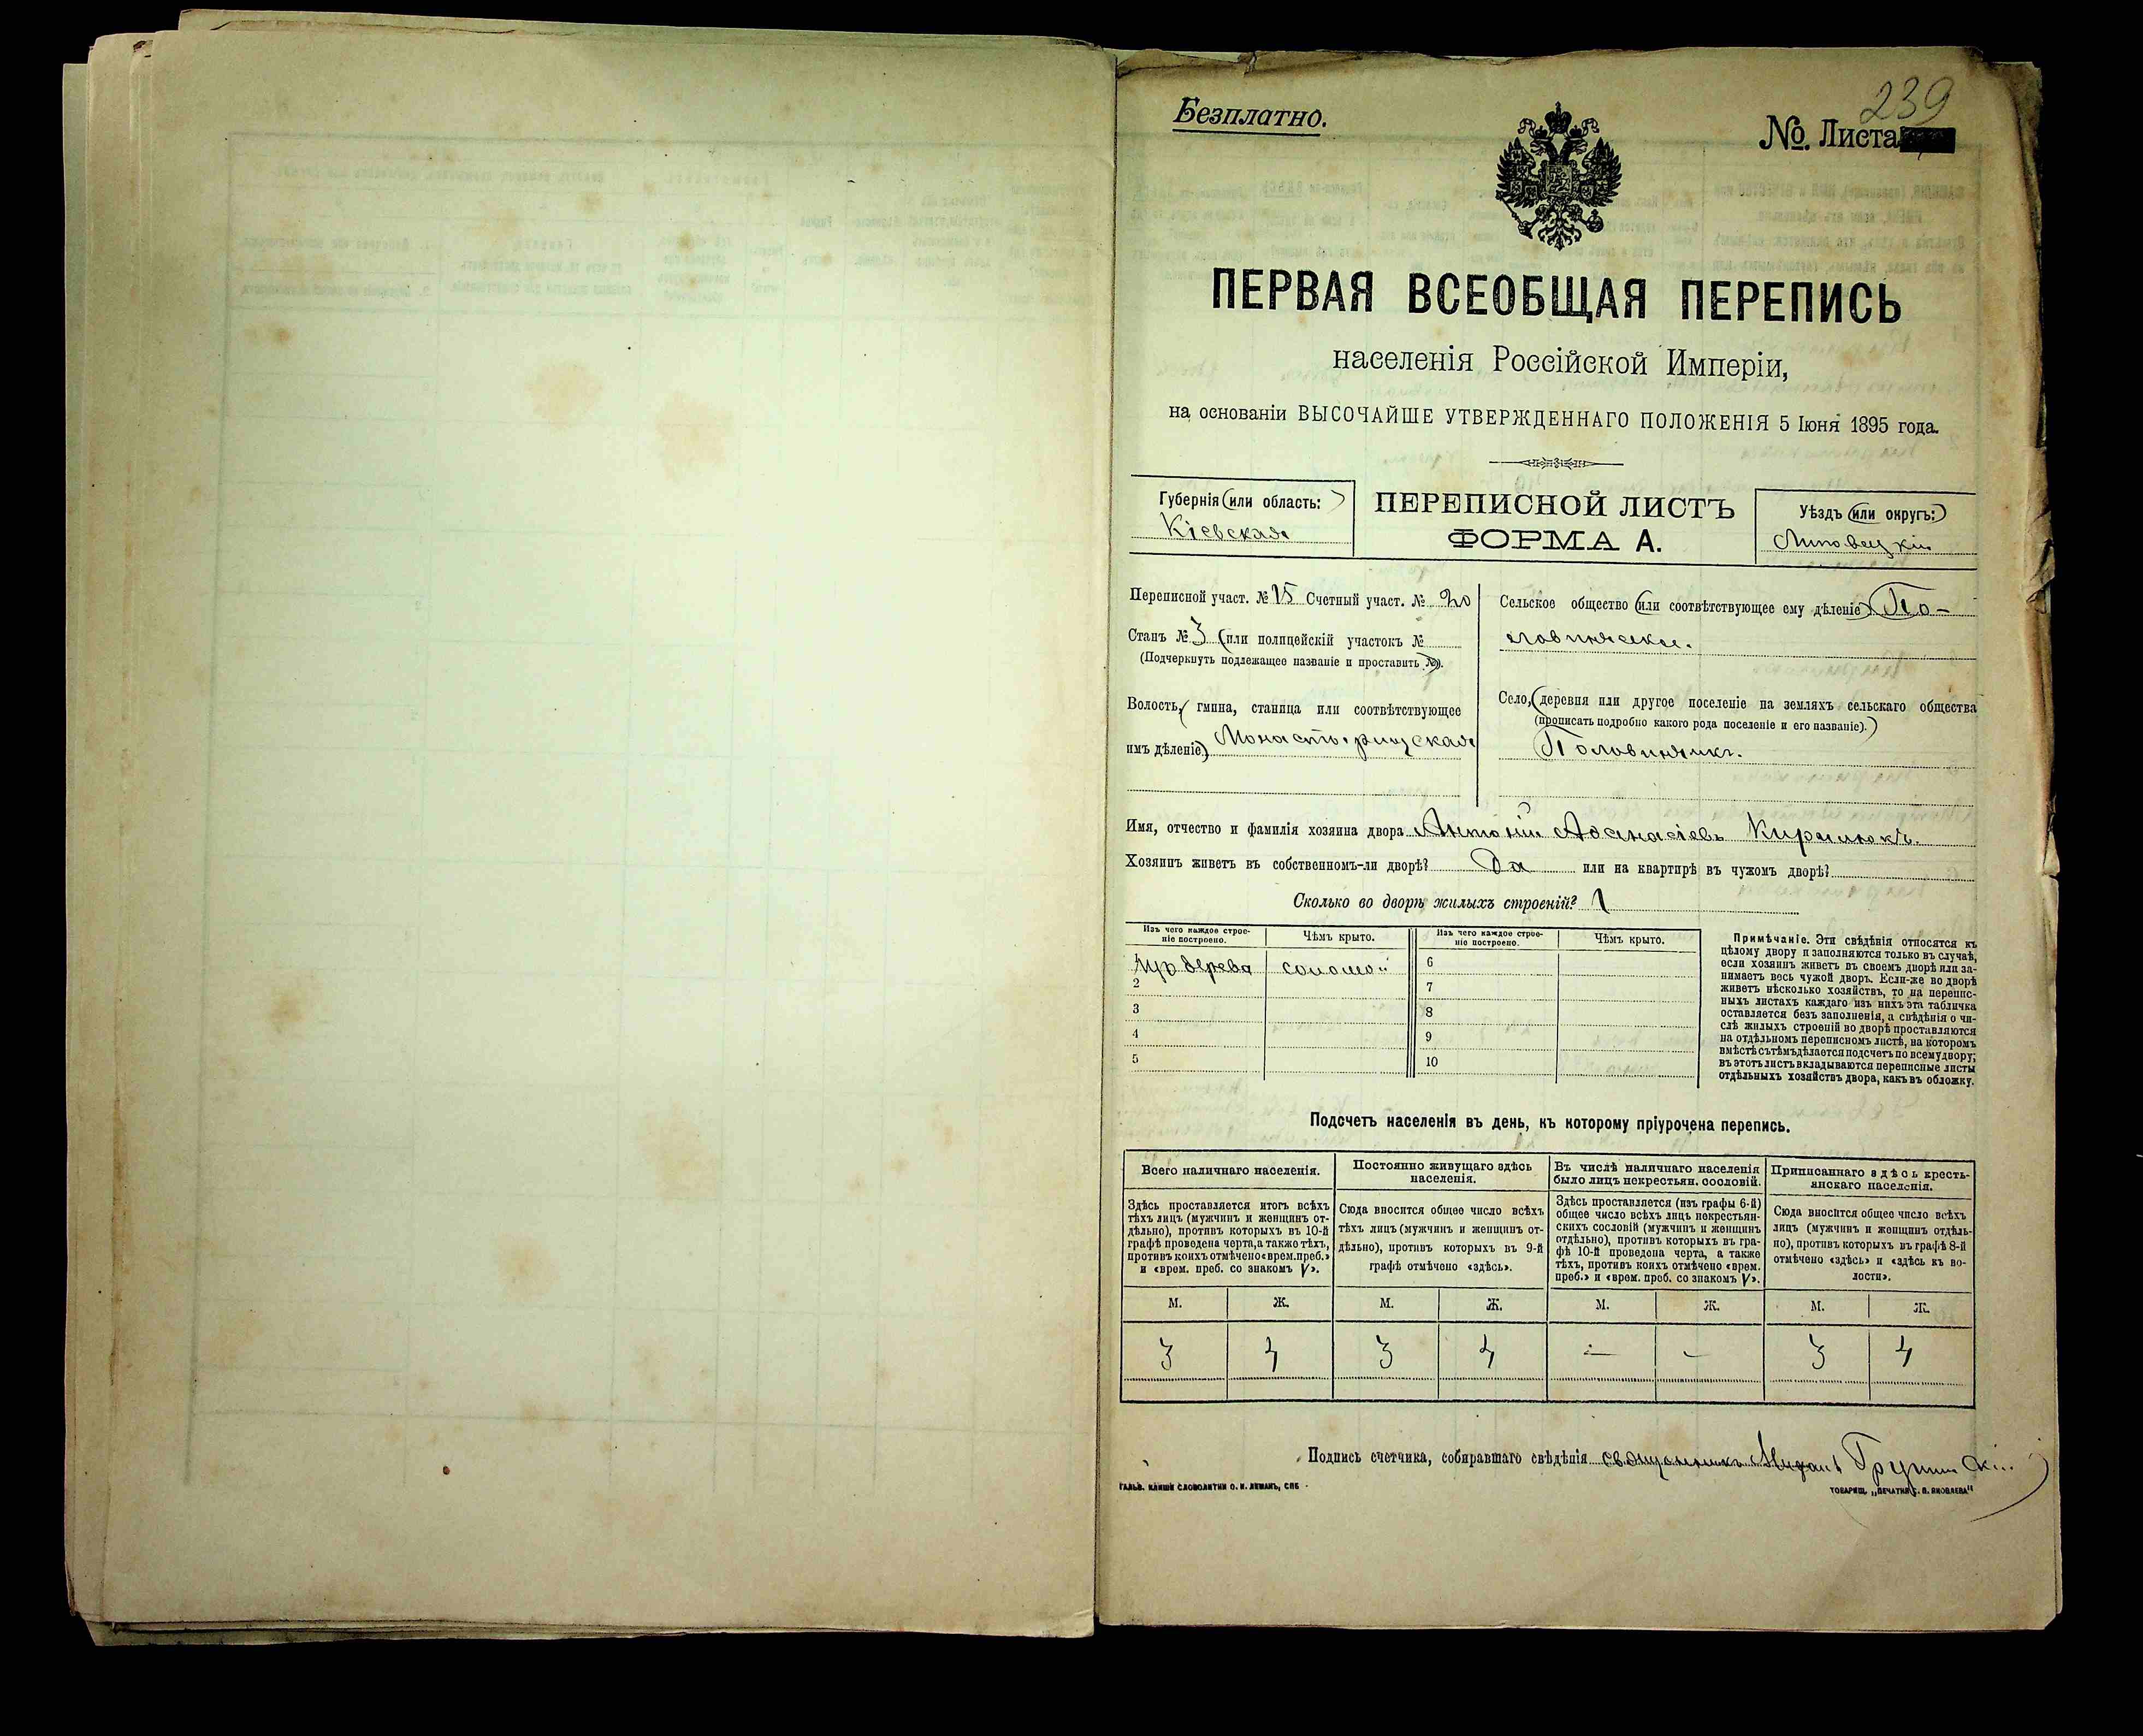 239
Безплатно.
№. Листа
ПЕРВАЯ ВСЕОБЩАЯ ПЕРЕПИСЬ
населенія Россійской Имперіи,
на основаніи ВЫСОЧАЙШЕ УТВЕРЖДЕННАГО ПОЛОЖЕНІЯ 5 Іюня 1895 года.
Губернія (или область:)
Кіевская
ПЕРЕПИСНОЙ ЛИСТЪ
ФОРМА А.
Уѣздъ (или округъ:)
Липовецкій
Переписной участ. № 15 Счетный участ. № 20
Станъ № 3 (или полицейскій участокъ №
(Подчеркнуть подлежащее названіе и проставить №).
Волость, (гмина, станица или соотвѣтствующее
имъ дѣленіе) Монастырищская
Сельское общество (или соотвѣтствующее ему дѣленіе) По-
ловинчикское.
Село, (деревня или другое поселеніе на земляхъ сельскаго общества
(прописать подробно какого рода поселеніе и его названіе).)
Половинчикъ.
Имя, отчество и фамилія хозяина двора Антоній Аѳанасіевъ Кирилюкъ.
Хозяинъ живетъ въ собственномъ-ли дворѣ? Да или на квартирѣ въ чужомъ дворѣ?
Сколько во дворѣ жилыхъ строеній? 1
Изъ чего каждое строе-
ніе построено.
Чѣмъ крыто.
Изъ чего каждое строе-
ніе построено.
Чѣмъ крыто.
1 изъ дерева соломой 6
2 7
3 8
4 9
5 10
Примѣчаніе. Эти свѣдѣнія относятся къ
цѣлому двору и заполняются только въ случаѣ,
если хозяинъ живетъ въ своемъ дворѣ или за-
нимаетъ весь чужой дворъ. Если-же во дворѣ
живетъ нѣсколько хозяйствъ, то на перепис-
ныхъ листахъ каждаго изъ нихъ эта табличка
оставляется безъ заполненія, а свѣдѣнія о чи-
слѣ жилыхъ строеній во дворѣ проставляются
на отдѣльномъ переписномъ листѣ, на которомъ
вмѣстѣ съ тѣмъ дѣлается подсчетъ по всему двору;
въ этотъ листъ вкладываются переписные листы
отдѣльныхъ хозяйствъ двора, какъ въ обложку.
Подсчетъ населенія въ день, къ которому пріурочена перепись.
Всего наличнаго населенія.
Здѣсь проставляется итогъ всѣхъ
тѣхъ лицъ (мужчинъ и женщинъ от-
дѣльно), противъ которыхъ въ 10-й
графѣ проведена черта, а также тѣхъ,
противъ коихъ отмѣчено «врем. преб.»
и «врем. преб. со знакомъ V».
Постоянно живущаго здѣсь
населенія.
Сюда вносится общее число всѣхъ
тѣхъ лицъ (мужчинъ и женщинъ от-
дѣльно), противъ которыхъ въ 9-й
графѣ отмѣчено «здѣсь».
Въ числѣ наличнаго населенія
было лицъ некрестьян. сословій.
Здѣсь проставляется (изъ графы 6-й)
общее число всѣхъ лицъ некрестьян-
скихъ сословій (мужчинъ и женщинъ
отдѣльно), противъ которыхъ въ гра-
фѣ 10-й проведена черта, а также
тѣхъ, противъ коихъ отмѣчено «врем.
преб.» и «врем. преб. со знакомъ V».
Приписаннаго здѣсь кресть-
янскаго населенія.
Сюда вносится общее число всѣхъ
лицъ (мужчинъ и женщинъ отдѣль-
но), противъ которыхъ въ графѣ 8-й
отмѣчено «здѣсь» и «здѣсь къ во-
лости».
М. Ж. М. Ж. М. Ж. М. Ж.
3 4 3 4 — — 3 4
Подпись счетчика, собиравшаго свѣдѣнія священникъ Михаилъ
ГАЛЬВ. КЛИШЕ СЛОВОЛИТНИ О. И. ЛЕМАНЪ, СПБ
ТОВАРИЩ. „ПЕЧАТНЯ С. П. ЯКОВЛЕВА“